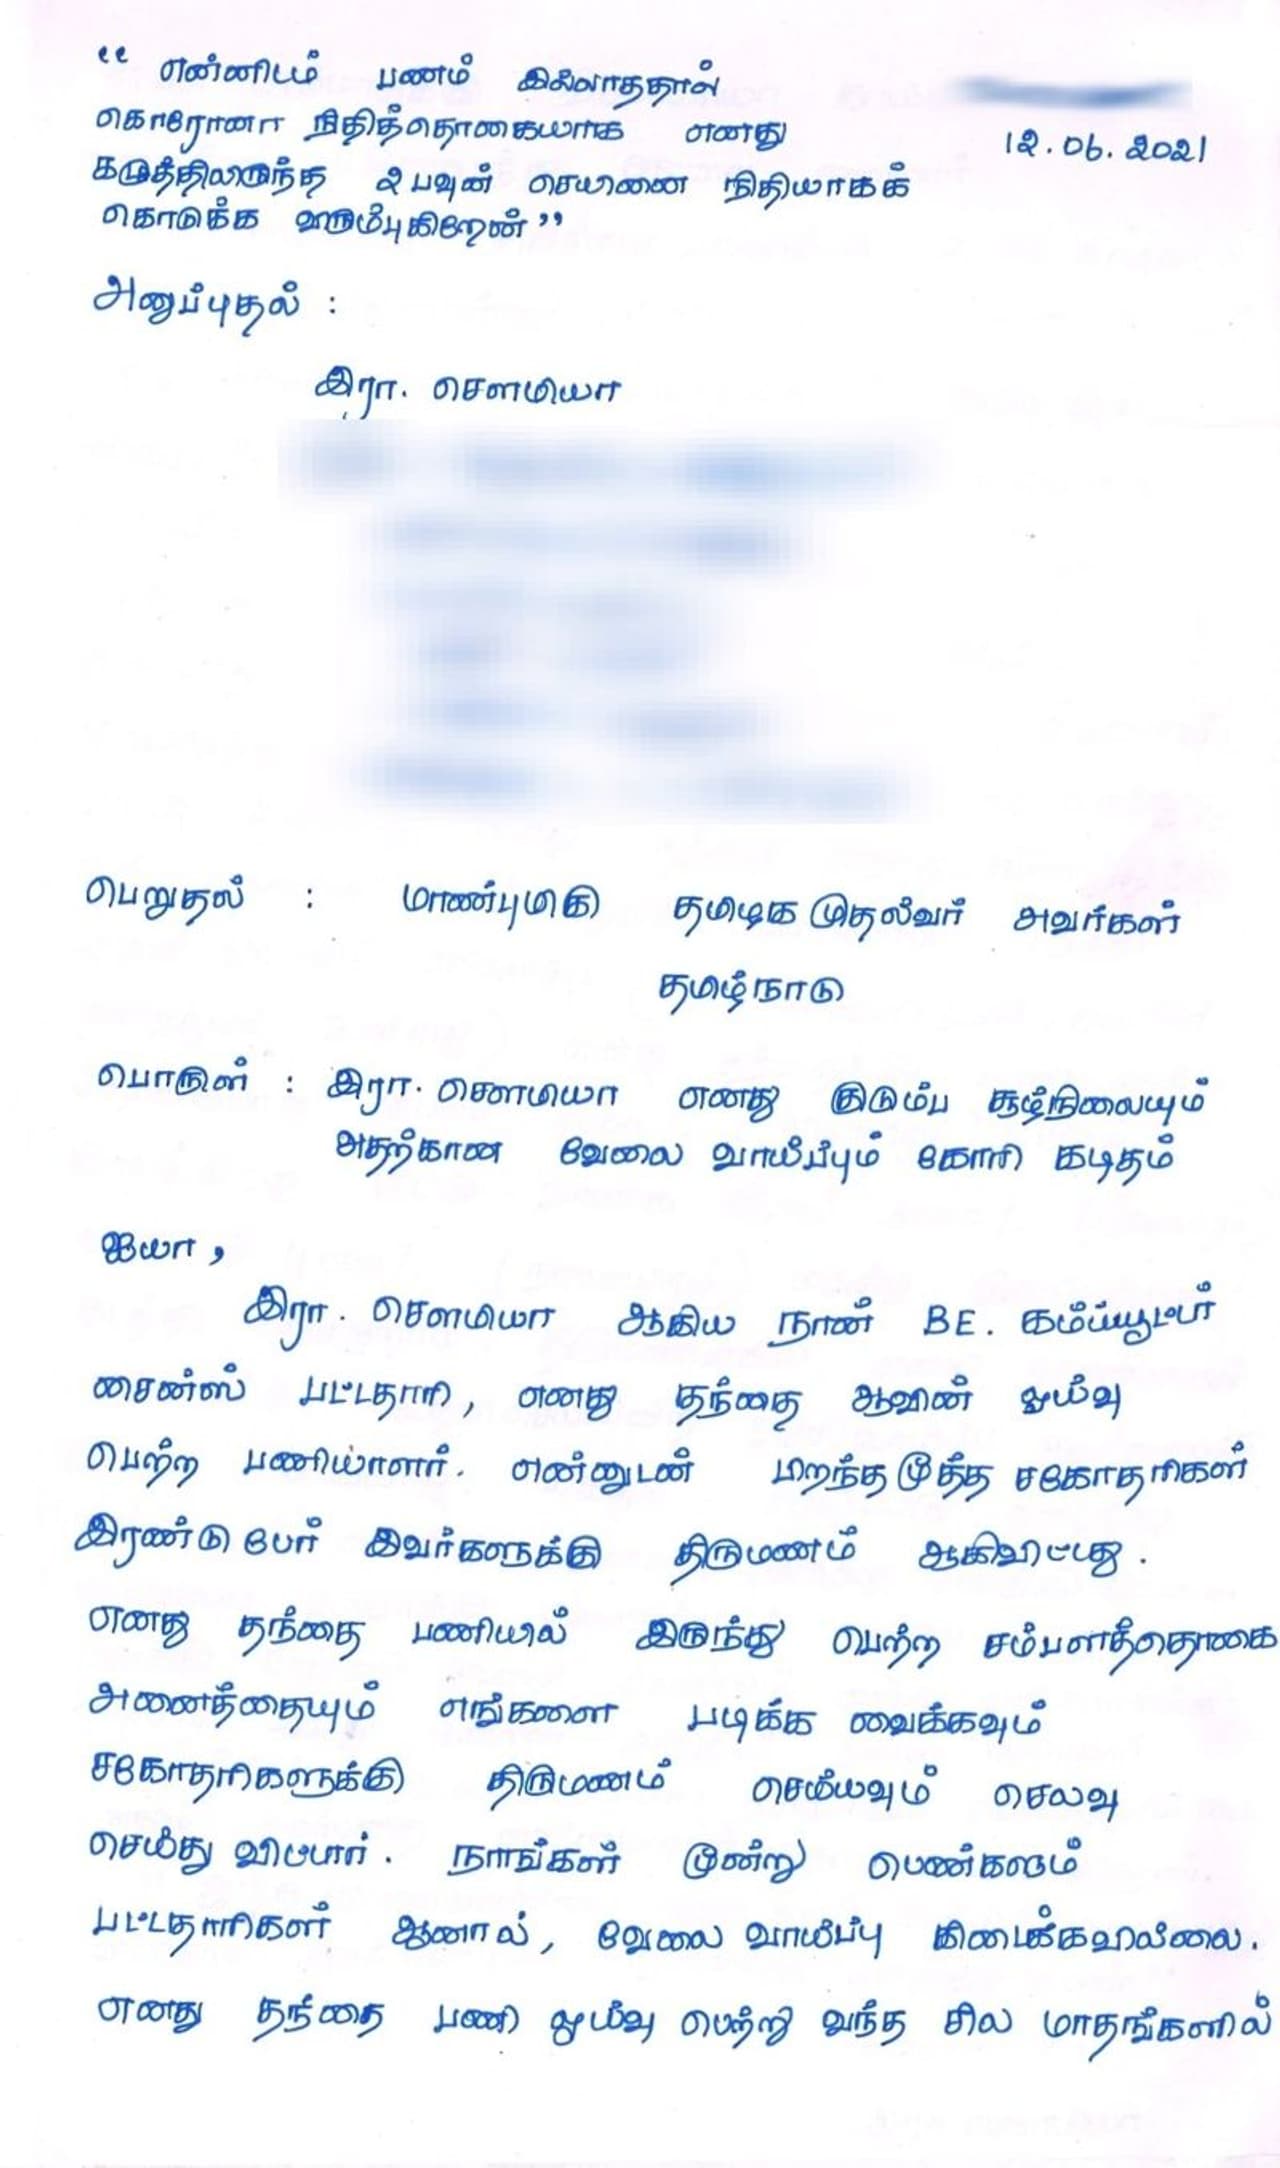 “ என்னிடம் பணம் இல்லாததால்
கொரோனா நிதித்தொகையாக எனது
12.06.2021
கழுத்திலிருந்த 2 பவுன் செயினை நிதியாகக்
கொடுக்க விரும்புகிறேன் ”
அனுப்புதல் :
இரா. சௌமியா
பெறுதல் : மாண்புமிகு தமிழக முதல்வர் அவர்கள்
தமிழ்நாடு
பொருள் : இரா. சௌமியா எனது குடும்ப சூழ்நிலையும்
அதற்கான வேலை வாய்ப்பும் கோரி கடிதம்
ஐயா,
இரா. சௌமியா ஆகிய நான் BE. கம்ப்யூட்டர்
சைன்ஸ் பட்டதாரி, எனது தந்தை ஆவின் ஓய்வு
பெற்ற பணியாளர். என்னுடன் பிறந்த மூத்த சகோதரிகள்
இரண்டு பேர் இவர்களுக்கு திருமணம் ஆகிவிட்டது.
எனது தந்தை பணியில் இருந்து பெற்ற சம்பளத்தொகை
அனைத்தையும் எங்களை படிக்க வைக்கவும்
சகோதரிகளுக்கு திருமணம் செய்யவும் செலவு
செய்து விட்டார். நாங்கள் மூன்று பெண்களும்
பட்டதாரிகள் ஆனால், வேலை வாய்ப்பு கிடைக்கவில்லை.
எனது தந்தை பணி ஓய்வு பெற்று வந்த சில மாதங்களில்